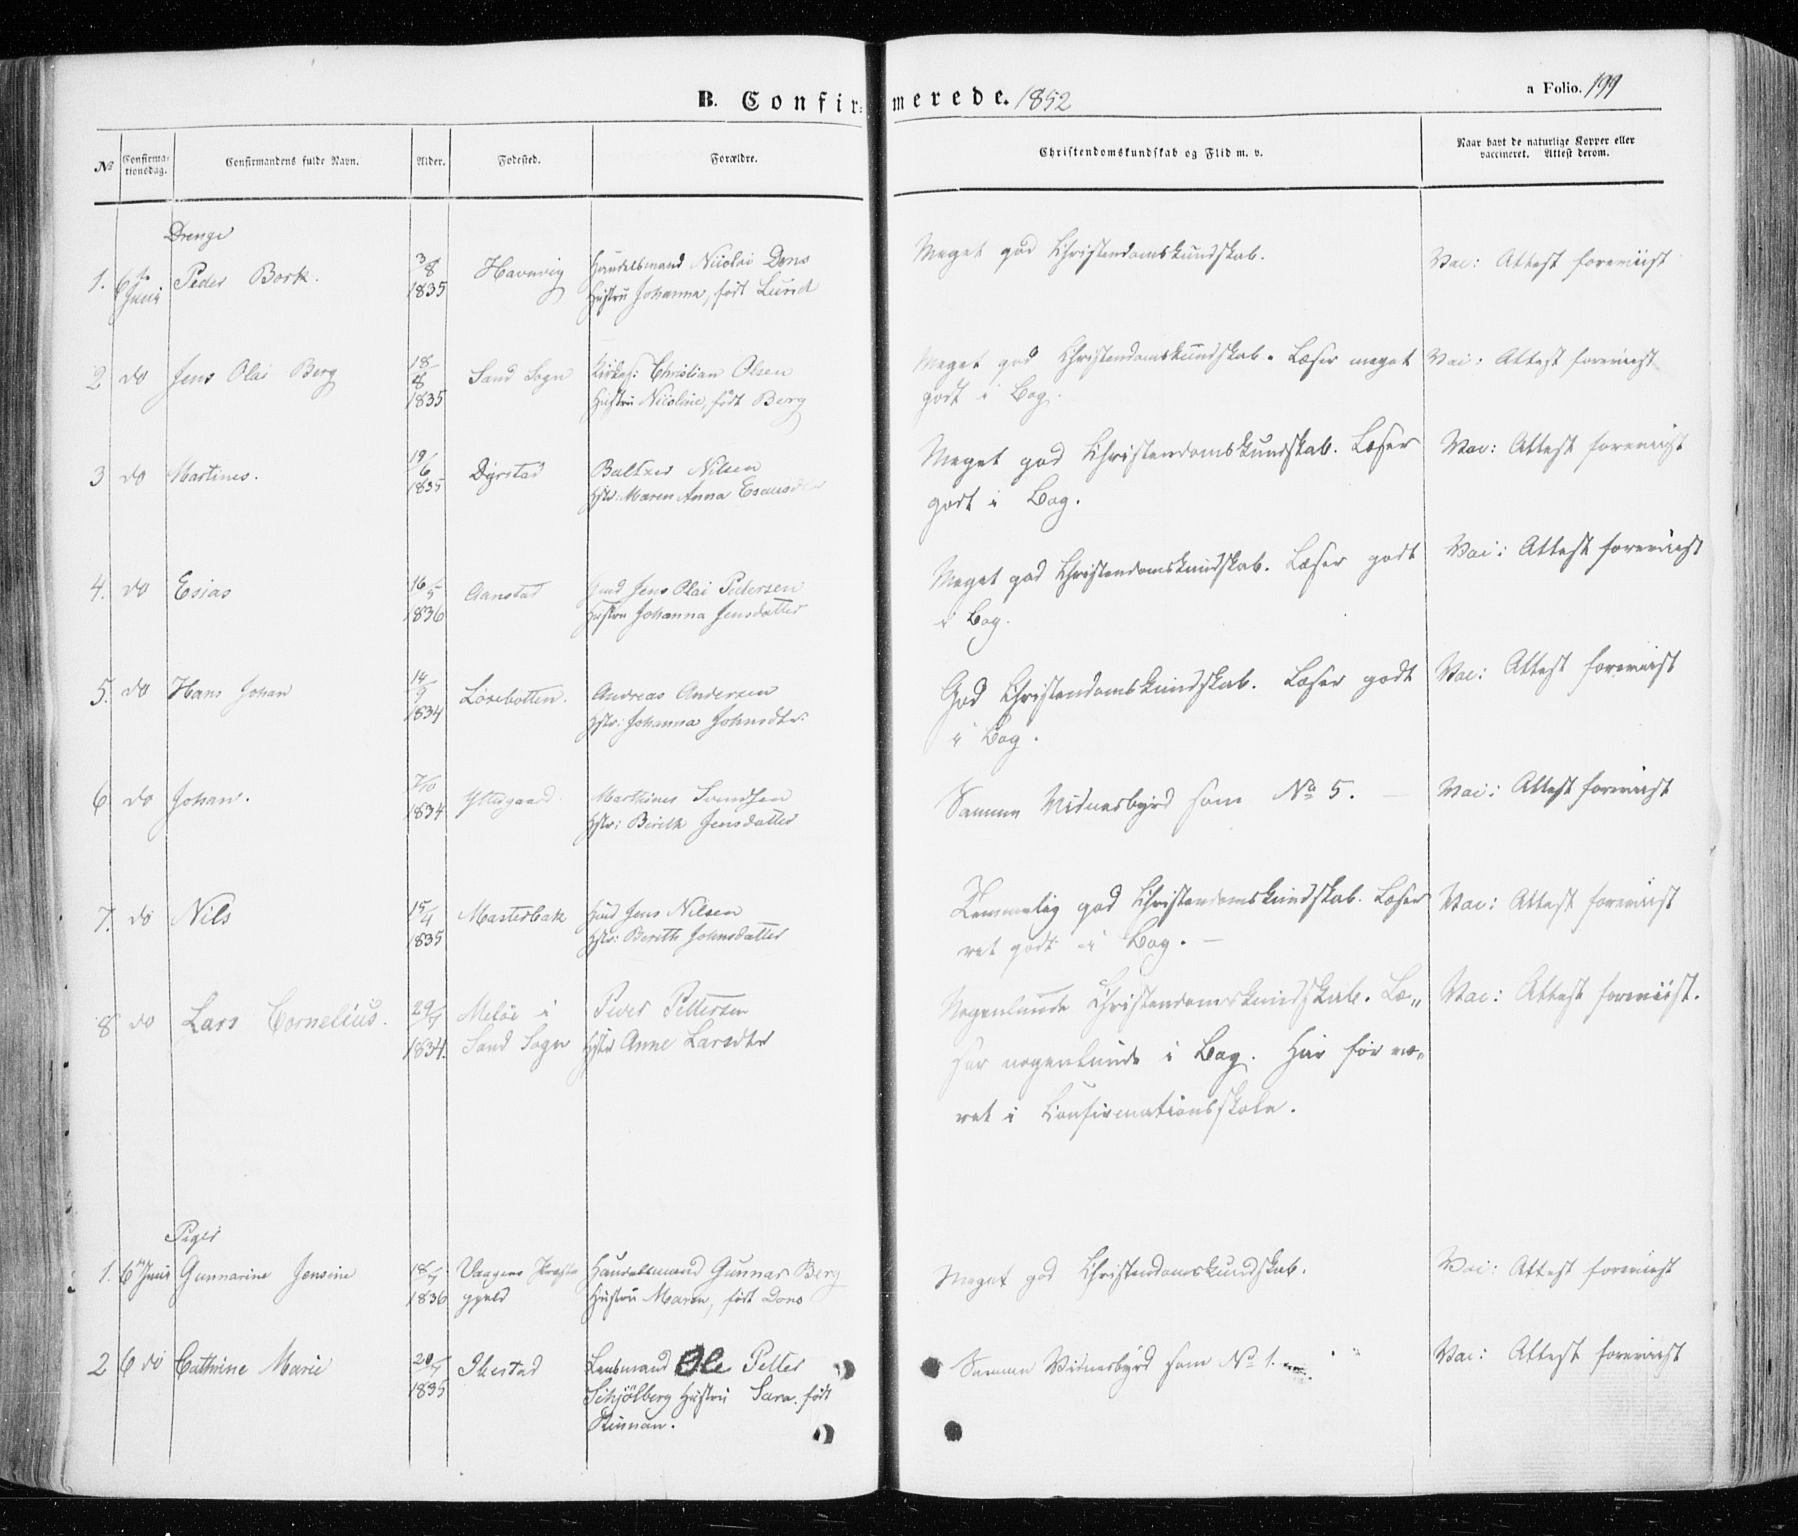 B. Confirmerede. 1852
a Folio. 199
No
Confirma-
tionsdag.
Confirmandens fulde Navn.
Alder.
Fødested.
Forældre.
Christendomskundskab og Flid m. v.
Naar havt de naturlige Kopper eller
vaccineret. Attest derom.
Drenge
1. 6te Juni Peder Bork. 3/8 1835 Havnvig Handelsmand Nicolai Dons
Hustru Johanna, født Lund
Meget god Christendomskundskab.
Vac: Attest foreviist
2 do Jens Olai Berg 18/8 1835 Sand Sogn Kirkes: Christian Olsen
Hustru Nicoline, født Berg
Meget god Christendomskundskab. Læser meget
godt i Bog.
Vac: Attest foreviist
3 do Martines. 19/6 1835 Dyrstad Baltzer Nilsen
Hstr: Maren Anna Esausdtr
Meget god Christendomskundskab. Læser
godt i Bog.
Vac: Attest foreviist
4. do Esias 16/5 1836 Aanstad Gmd Jens Olai Pedersen
Hustru Johanna Jensdatter
Meget god Christendomskundskab. Læser godt
i Bog.
Vac: Attest foreviist
5. do Hans Johan 14/9 1834 Løsebotten. Andreas Andersen
Hstr: Johanna Johnsdtr.
God Christendomskundskab. Læser godt
i Bog.
Vac: Attest foreviist
6 do Johan. 7/10 1834 Marthines Svendsen
Hstr: Berith Jensdatter
Samme Vidnesbyrd som No 5. —
Vac: Attest foreviist
7. do Nils 15/4 1835 Masterbak Huud Jens Nilsen
Hstr: Berith Johnsdatter
Temmelig god Christendomskundskab. Læser
ret godt i Bog. —
Vac: Attest foreviist
8 do Lars Cornelius. 29/7 1834. Meløe i
Sand Sogn
Peder Pettersen
Hstr Anne Larsdtr
Nogenlunde Christendomskundskab. Læ„
ser nogenlunde i Bog. Har før væ„
ret i Confirmationsskole.
Vac: Attest foreviist.
Piger
1. 6te Juni Gunnarine Jensine 18/7 1836 Vaagens Præste
gjeld
Handelsmand Gunnar Berg
Hustru Maren, født Dons
Meget god Christendomskundskab.
Vac: Attest foreviist
2 6 do Cathrine Marie 20/7 1835 Ibestad Lensmand Ole Petter
Schjølberg Hustru Sara. født
Samme Vidnesbyrd som No 1.
Vac: Attest foreviist